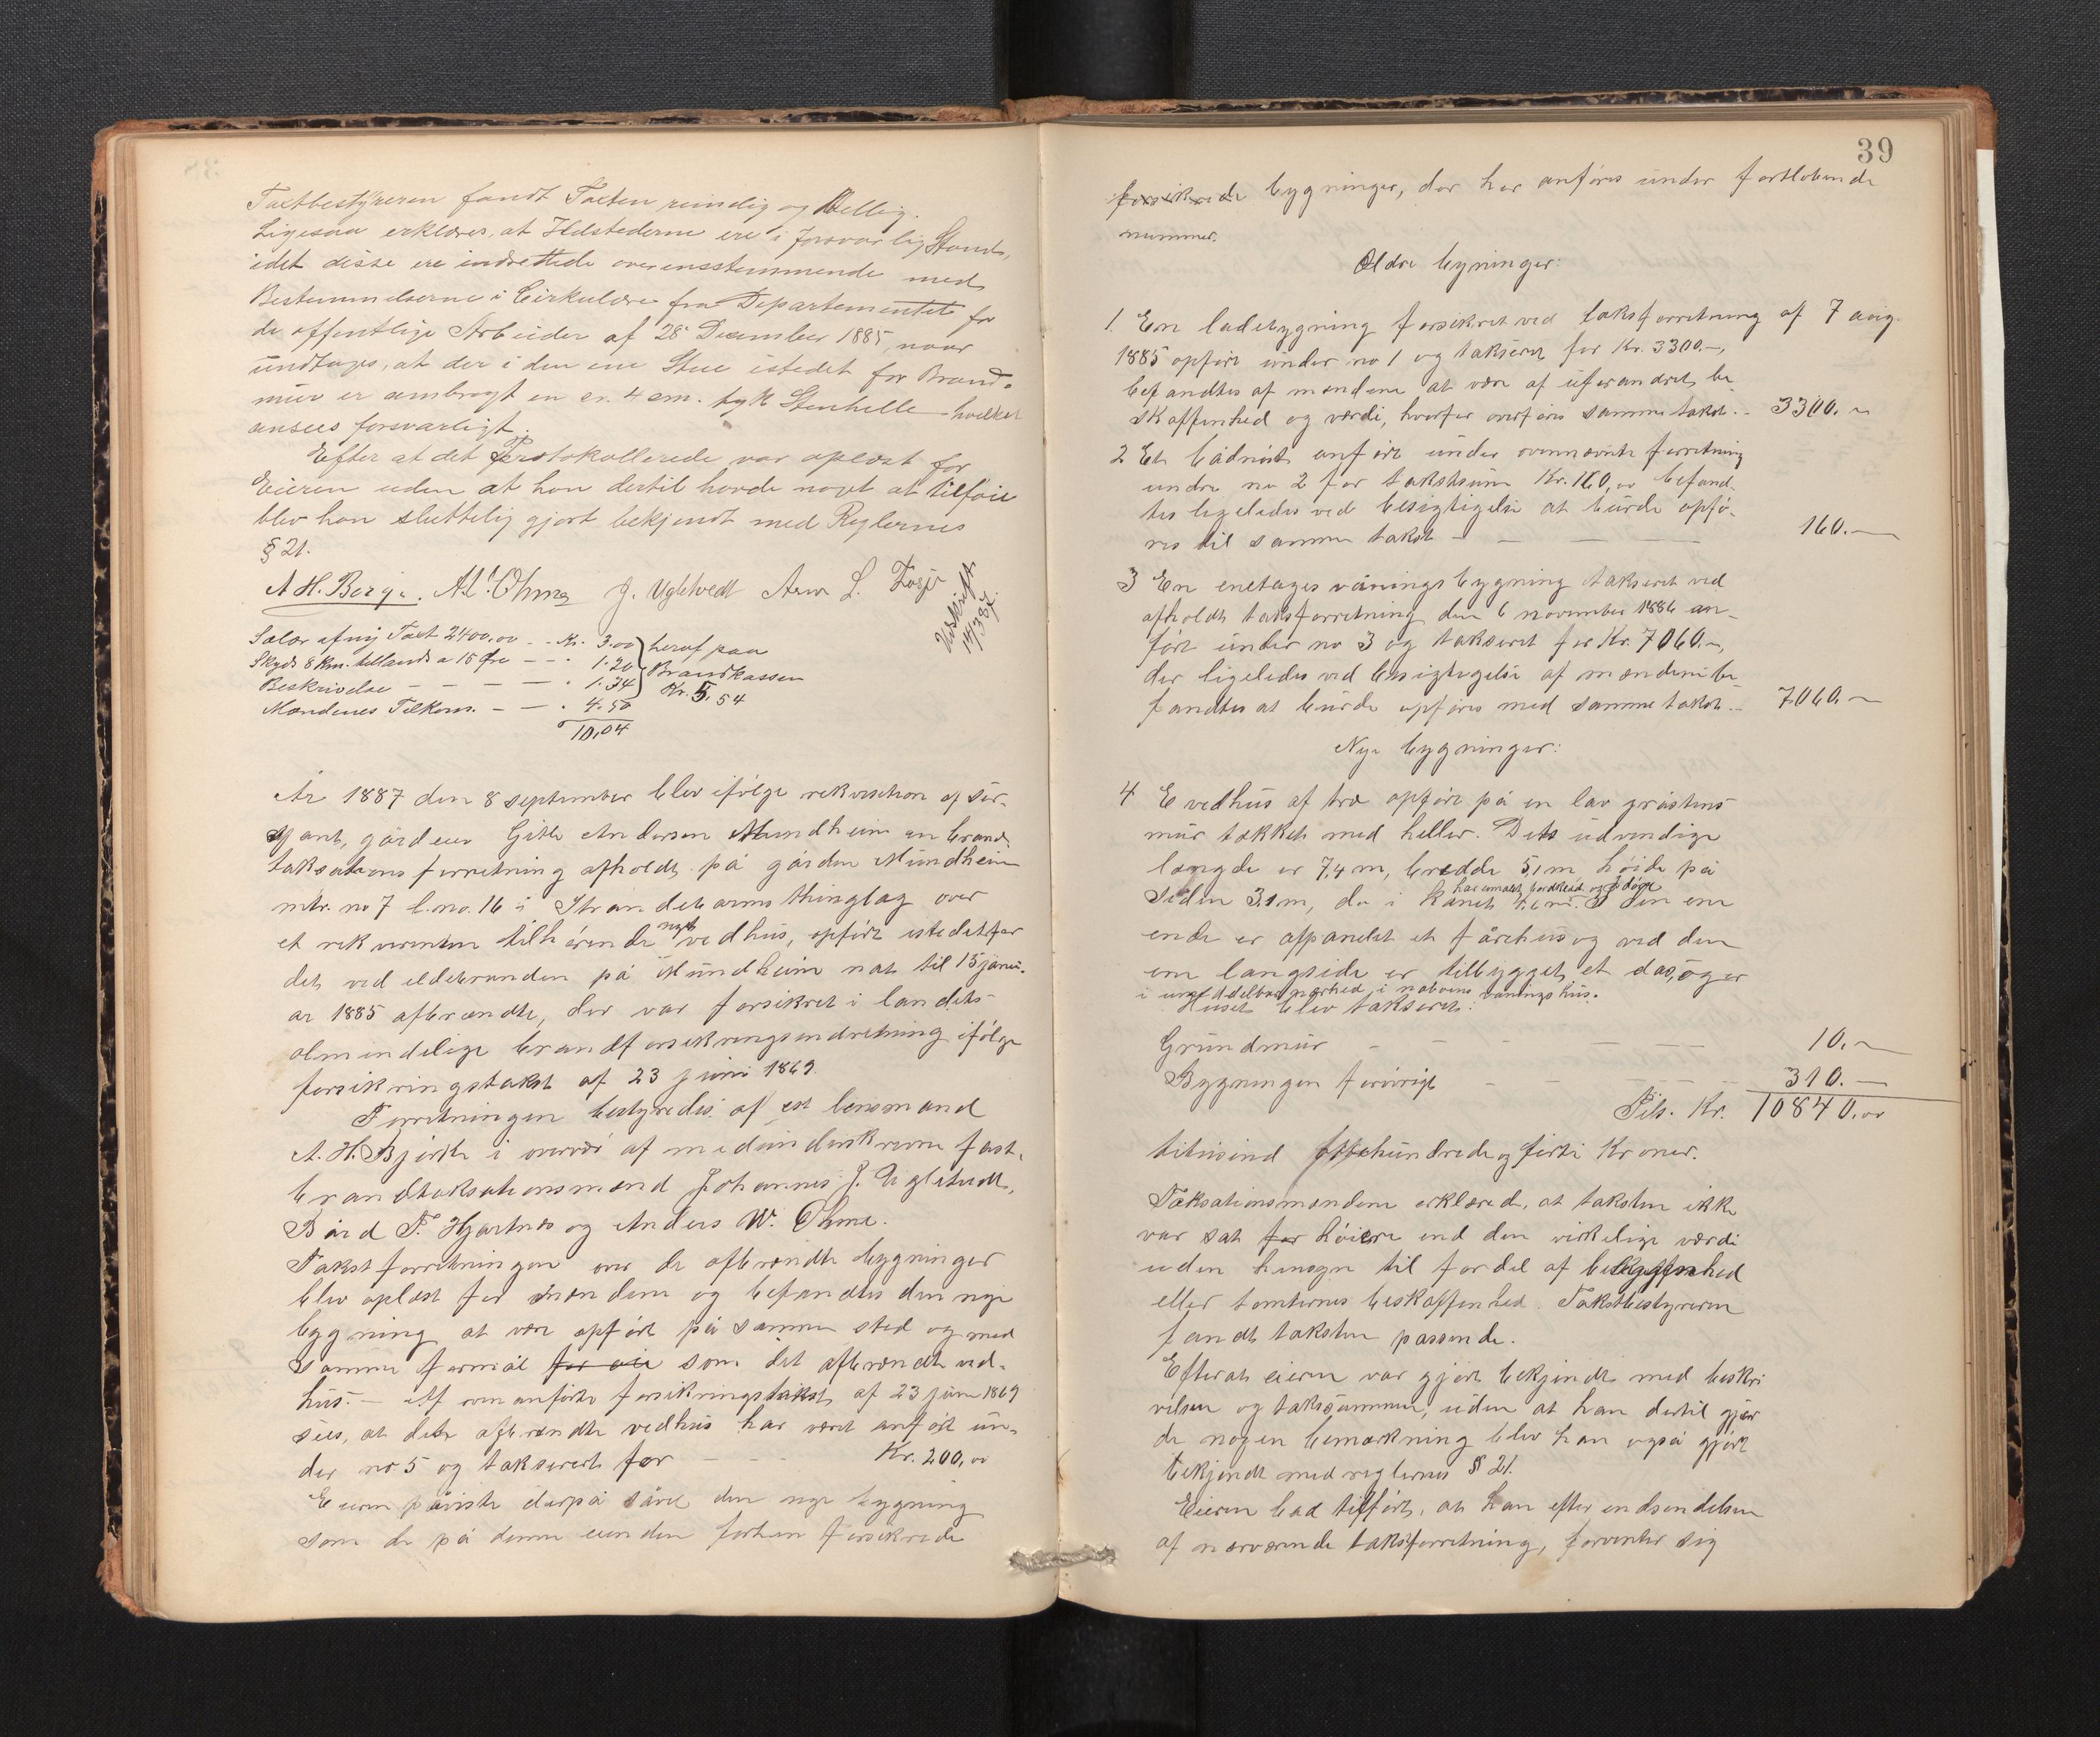 Taxtbestyreren fandt Taxten rimelig og billig.
Ligesaa erklæres, at Ildstederne ere i forsvarlig Stand,
idet disse ere indrettede overensstemmende med
Bestemmelserne i Cirkulære fra Departementet for
de offentlige Arbeider af 28de December 1885, naar
undtages, at der i den ene Stue istedet for Brand-
mur er anbragt en ca. 4 cm. tyk Stenhelle hvilket
ansees forsvarligt.
Efter at det Protokollerede var oplæst for
Eieren uden at han dertil havde noget at tilføie
blev han sluttelig gjort bekjendt med Reglernes
§ 21.
A H. Berge. A. Ohma J. Ugletvedt Arne L.
Udskrift 14/3 87.
Salær af ny Taxt 2400,00 - - Kr. 3.00 heraf paa
Skyds 8 Km. tillands a 15 Øre - - 1.20 Brandkassen
Beskrivelse - - - - 1.34 Kr. 5.54
Mændenes Tilkom. - - 4.50
10,04
År 1887 den 8 september blev ifølge rekvisition af ser-
gant, gårdeier Gitle Andersen Mundheim en brand-
taksationsforretning afholdt på gården Mundheim
mtr. no 7 l. no. 16 i Strandebarms thinglag over
et rekvirenten tilhørende nyt vedhus, opført istedetfor
det ved ildebranden på Mundheim nat til 15 janu-
ar 1885 afbrændte, der var forsikret i landets
almindelige brandforsikringsindretning ifølge
forsikringstakst af 23 juni 1869.
Forretningen bestyredes af lensmand
A. H. Bjørke i overvær af medunderskrevne fast.
brandtaksationsmænd Johannes J. Ugletvedt,
Bård T. Hjartnes og Anders W. Ohma.
Takstforretningen over de afbrændte bygninger
blev oplæst for mændene og befandtes den nye
bygning at være opført på samme sted og med
samme formål som det afbrændte ved-
hus. - Af ovenanførte forsikringstakst af 23 juni 1869
sees, at det afbrændte vedhus har været anført un-
der no 5 og takseret for - - - Kr. 200,00
Eieren påviste derpå såvel den nye bygning
som de på denne eiendom forhen forsikrede
39
forsikrede bygninger, der her anføres under fortløbende
nummer.
Ældre bygninger:
1. En ladebygning forsikret ved taksforretning af 7 aug.
1885 opført under no 1 og takseret for Kr. 3300.-,
befandtes af mændene at være af uforandret be-
skaffenhed og værdi, hvorfor overføres samme takst. - 3300.-
2 Et bådnøst anført under ovennævnte forretning
under no 2 for takstsum Kr. 160,00 befand-
tes ligeledes ved besigtigelse at burde opfø-
res til samme takst - - - - 160.-
3 En enetages våningsbygning takseret ved
afholdt taksforretning den 6 november 1886 an-
ført under no 3 og takseret for Kr. 7060.-,
der ligeledes ved besigtigelse af mændene be-
fandtes at burde opføres med samme takst. - 7060.-
Nye bygninger:
4 E vedhus af træ opført på en lav gråstens-
mur tækket med heller. Dets udvendige
længde er 7,4 m, bredde 5,1 m, høide på
siden 3,1 m, den ene
har umalet bordklæd. og 3 døre
ende er afpanelet et fårehus og ved den
ene langside er tilbygget et das, og er
i umiddelbar nærhed i naboens våningshus.
Huset blev takseret:
Grundmur - - - - 10.-
Bygningen forøvrigt - - - 310.-
Tils. Kr. 10840,00
titusind ottehundrede og førti Kroner.
Taksationsmændene erklærede, at taksten ikke
var sat for høiere end den virkelige værdi
uden hensyn til fordel af beliggenhed
eller tomternes beskaffenhed. Takstbestyreren
fandt taksten passende.
Efterat eieren var gjort bekjendt med beskri-
velsen og taksummen, uden at han dertil gjor-
de nogen bemærkning blev han også gjort
bekjendt med reglernes § 21.
Eieren bad tilført, at han efter indsendelsen
af nærværende taksforretning, forventer sig